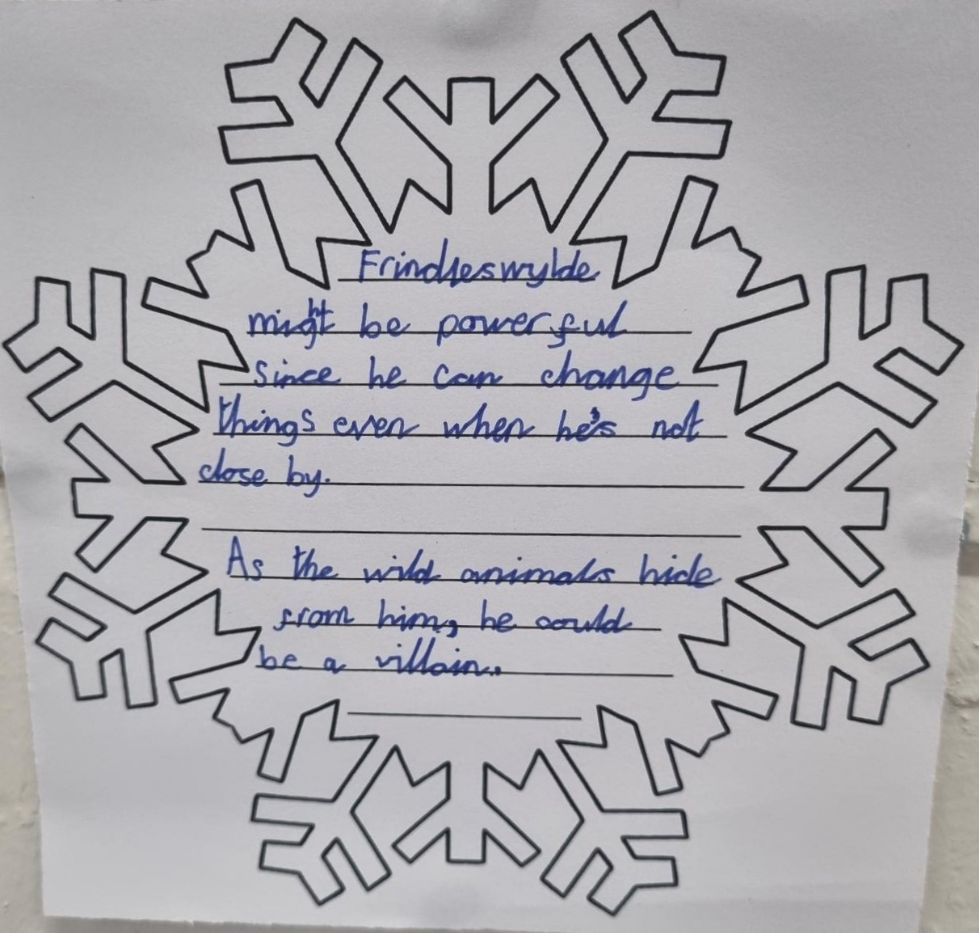 Frindleswylde
might be powerful
since he can change
things even when he's not
close by.
As the wild animals hide
from him, he could
be a villain.